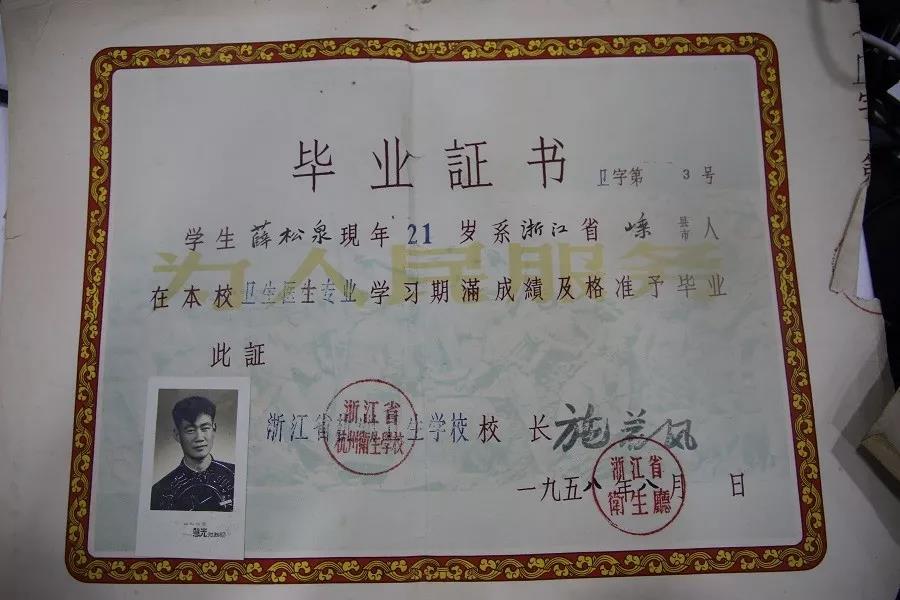 毕业証书
卫字第 3 号
学生薛松泉現年21岁系浙江省嵊县市人
为人民服务
在本校卫生医生专业学习期滿成績及格准予毕业
此証
浙江省 生学校校长施 风
浙江省
杭州衛生学校
一九五八年八月 日
浙江省
衛生廳